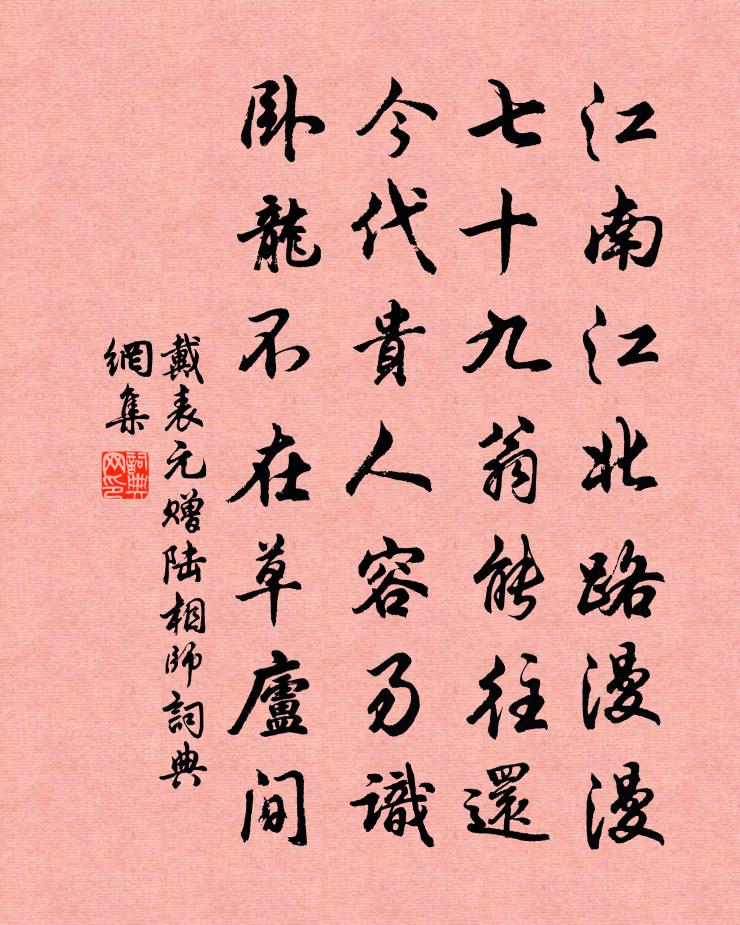 江南江北路漫漫
七十九翁能往還
今代貴人容易識
臥龍不在草廬间
戴表元赠陆相師詞典
網集
詞典网印